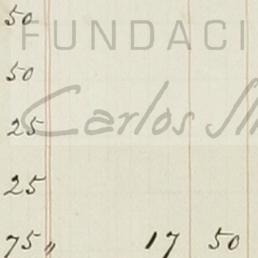 50
FUNDACI
50
Carlos Sli
25
25
75 " 17 50